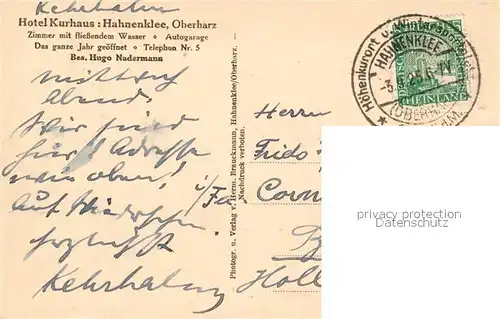 Kehrhahn
Hotel Kurhaus : Hahnenklee, Oberharz
Zimmer mit fließendem Wasser • Autogarage
Das ganze Jahr geöffnet • Telephon Nr. 5
Bes. Hugo Nadermann
Mittwoch
Abend.
Wir sind
Adresse
wie oben!
Auf Wiedersehen
herzlichst
Kehrhahn
Photogr. u. Verlag v. Herm. Brauckmann, Hahnenklee/Oberharz.
Nachdruck verboten.
Höhenkurort u. Wintersportplatz
HAHNENKLEE
(OBERHARZ)
RHEINLAND
Herrn
Frido
i/Fa
Holl
privacy protection
Datenschutz